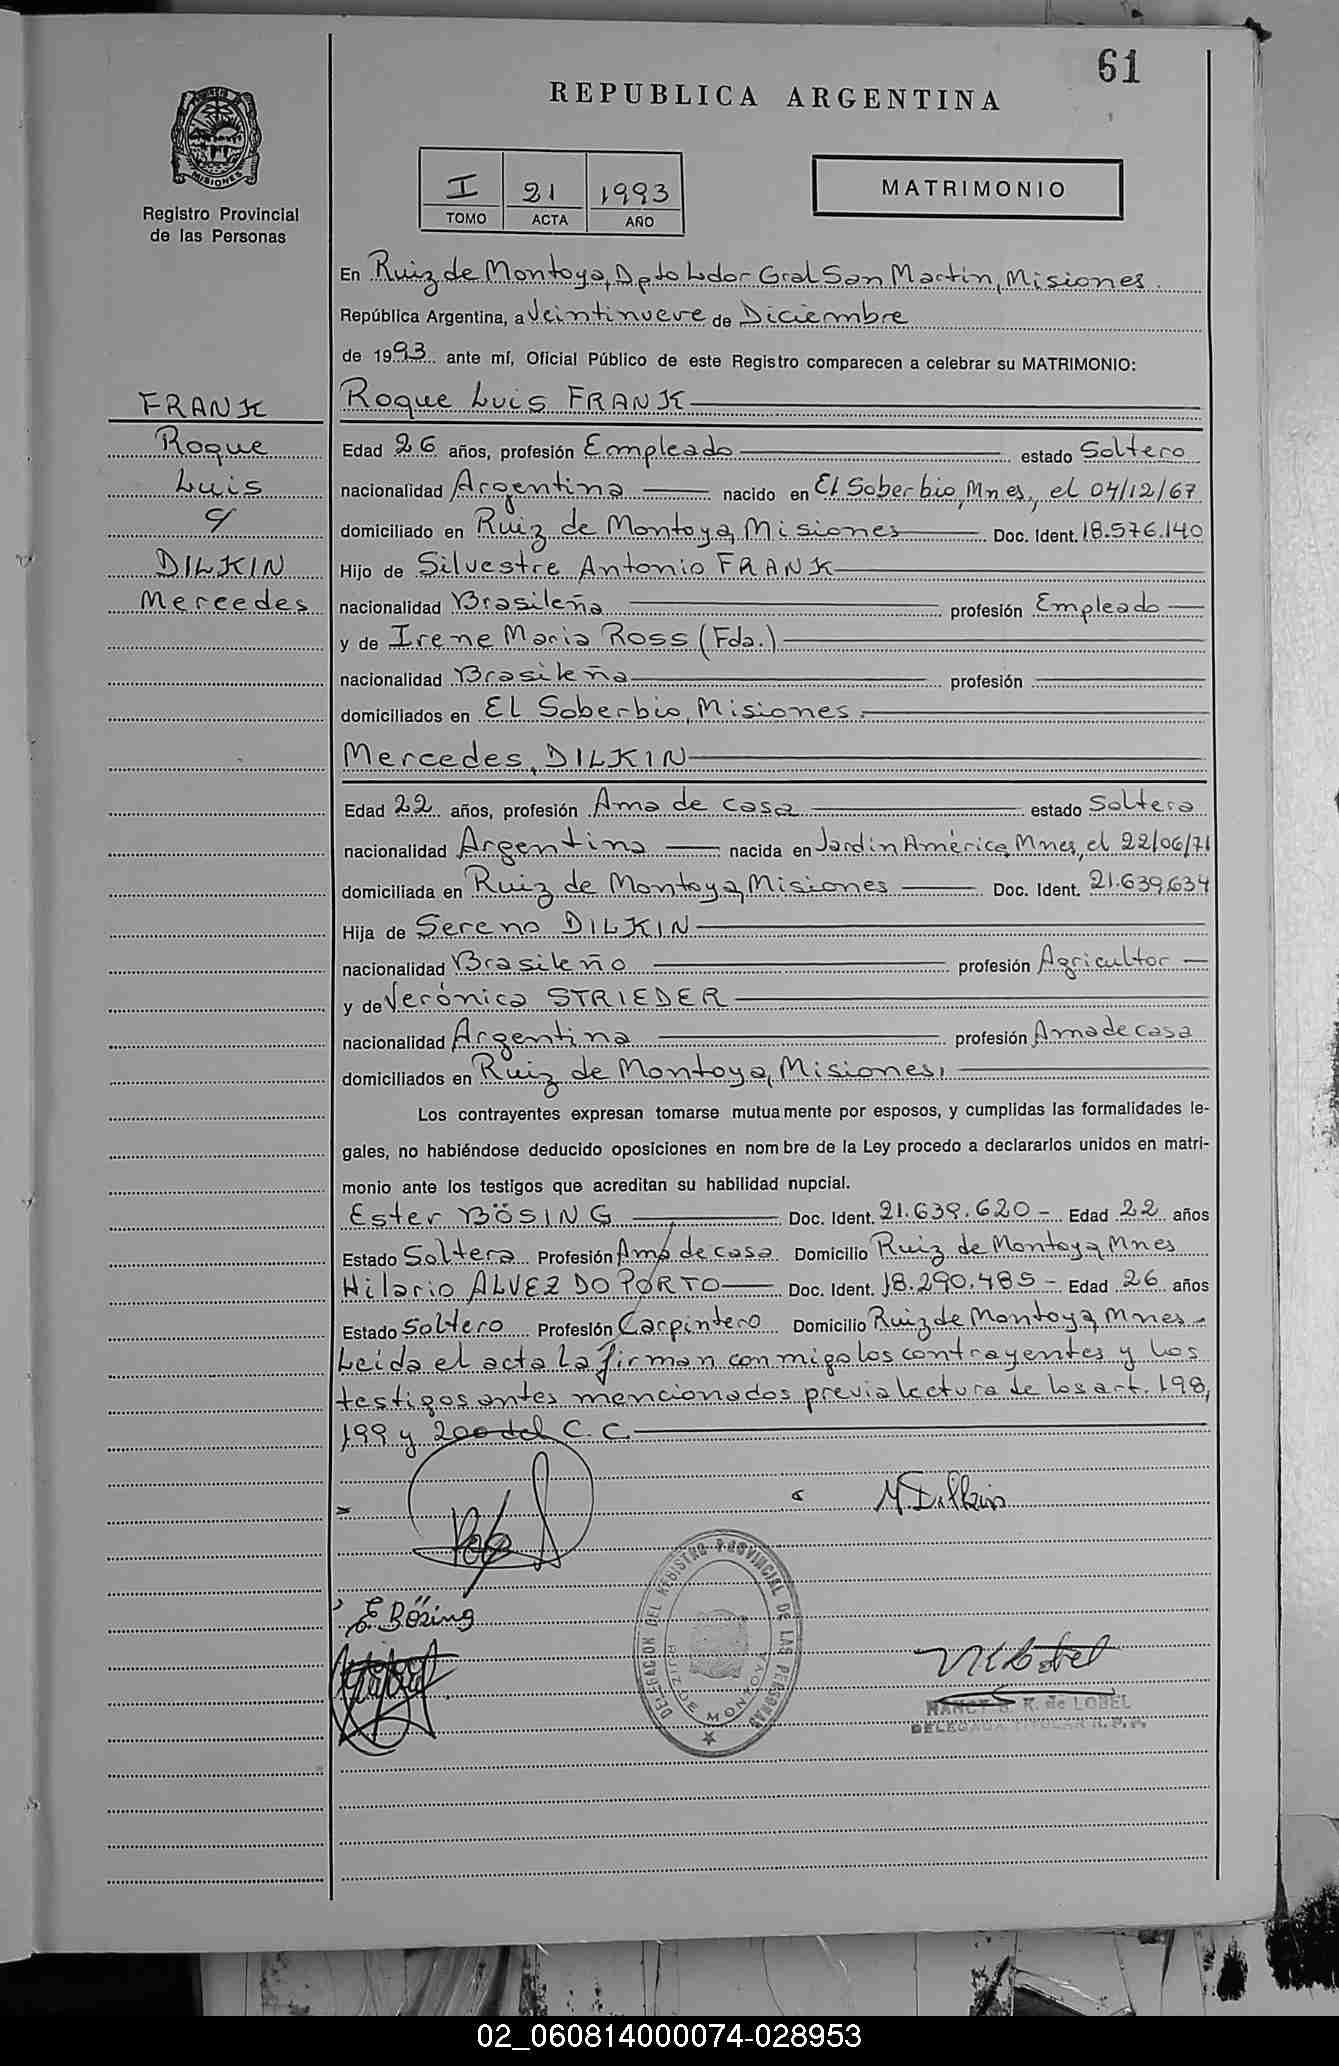 61
REPUBLICA ARGENTINA
MISIONES
Registro Provincial
de las Personas
I 21 1993
TOMO ACTA AÑO
MATRIMONIO
En Ruiz de Montoya, Dpto Ldor Gral San Martín, Misiones.
República Argentina, a Veintinueve de Diciembre
de 1993 ante mí, Oficial Público de este Registro comparecen a celebrar su MATRIMONIO:
FRANK
Roque
Luis
c/
DILKIN
Mercedes
Roque Luis FRANK
Edad 26 años, profesión Empleado estado Soltero
nacionalidad Argentina nacido en El Soberbio, Mnes., el 04/12/67
domiciliado en Ruiz de Montoya, Misiones Doc. Ident. 18.576.140
Hijo de Silvestre Antonio FRANK
nacionalidad Brasileña profesión Empleado
y de Irene Maria ROSS (Fda.)
nacionalidad Brasileña profesión
domiciliados en El Soberbio, Misiones.
Mercedes, DILKIN
Edad 22 años, profesión Ama de casa estado Soltera
nacionalidad Argentina nacida en Jardín América, Mnes, el 22/06/71
domiciliada en Ruiz de Montoya, Misiones Doc. Ident. 21.639.634
Hija de Sereno DILKIN
nacionalidad Brasileño profesión Agricultor
y de Verónica STRIEDER
nacionalidad Argentina profesión Ama de casa
domiciliados en Ruiz de Montoya, Misiones.
Los contrayentes expresan tomarse mutuamente por esposos, y cumplidas las formalidades le-
gales, no habiéndose deducido oposiciones en nombre de la Ley procedo a declararlos unidos en matri-
monio ante los testigos que acreditan su habilidad nupcial.
Ester BÖSING Doc. Ident. 21.639.620 - Edad 22 años
Estado Soltera Profesión Ama de casa Domicilio Ruiz de Montoya, Mnes
Hilario ALVEZ DO PORTO Doc. Ident. 18.290.485 - Edad 26 años
Estado Soltero Profesión Carpintero Domicilio Ruiz de Montoya, Mnes.
Leída el acta la firman conmigo los contrayentes y los
testigos antes mencionados previa lectura de los art. 198,
199 y 200 del C.C.
M. Dilkin
E. Bösing
DELEGACION DEL REGISTRO PROVINCIAL DE LAS PERSONAS
RUIZ DE MONTOYA
NANCY K. de LOBEL
DELEGADA TITULAR R.P.P.
02_060814000074-028953